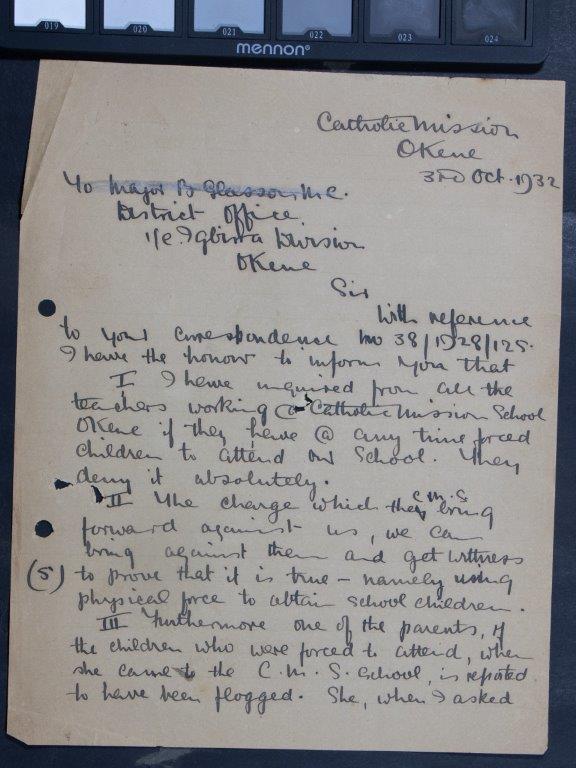 019 020 021 022 023 024
mennon®
Catholic Mission
Okene
3RD Oct. 1932
To Major B Glasson M.C.
District Office
i/c Igbirra Division
Okene
Sir
With reference
to your correspondence No 38/1928/125.
I have the honour to inform you that
I I have inquired from all the
teachers working @ Catholic Mission School
Okene if they have @ any time forced
children to attend our School. They
deny it absolutely.
II The charge which the C.M.S bring
forward against us, we can
bring against them and get witness
(5) to prove that it is true - namely using
physical force to obtain school children.
III Furthermore one of the parents, of
the children who were forced to attend, when
she came to the C.M.S. School, is reported
to have been flogged. She, when I asked